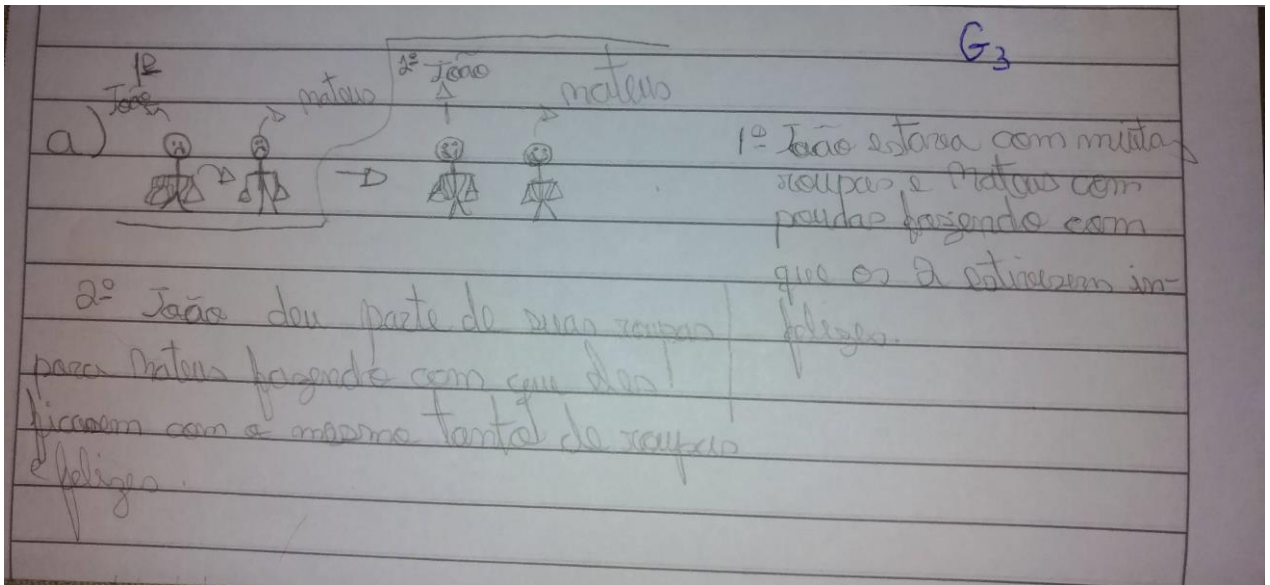 G3
1º
João
mateus
2º João
mateus
a)
1º João estava com muitas
roupas, e Mateus com
poucas fazendo com
que os 2 estivessem in-
felizes.
2º João deu parte de suas roupas
para Mateus fazendo com que eles
ficassem com o mesmo tanto de roupas
e felizes.